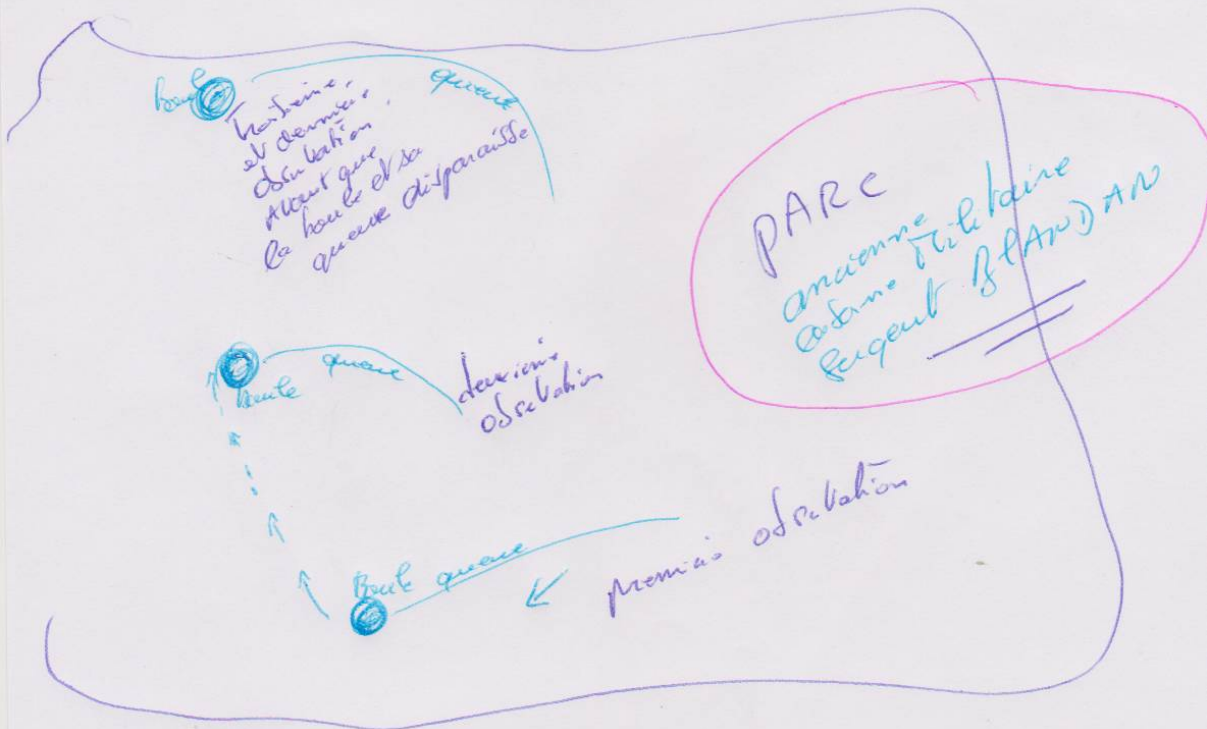 Boule
queue
troisième,
et dernière
observation
Avant que
la boule et sa
queue disparaisse
PARC
ancienne
caserne Militaire
Sergent BLANDAN
Boule
queue
deuxième
observation
Boule queue
première observation